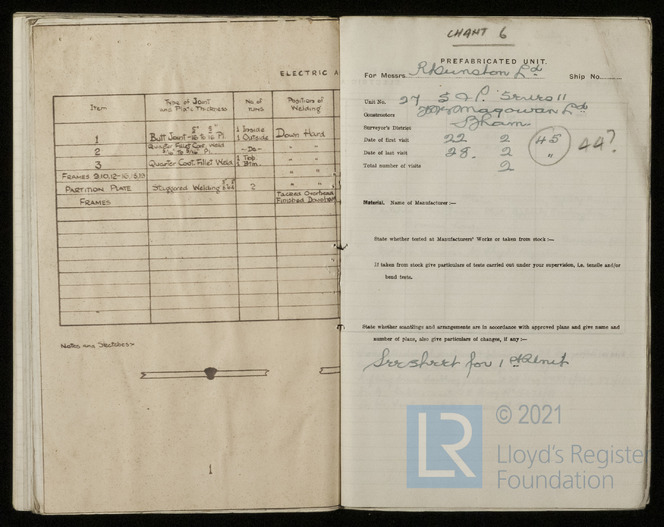 ELECTRIC A
Item
Type of Joint and Plate Thickness
No of runs
Position of Welding
1
Butt Joint
1 Inside
1 Outside
Down Hand
2
Quarter Fillet Cont. Weld
- Do -
" "
3
Quarter Cont. Fillet Weld
1 Top
1 Btm.
" "
FRAMES
" "
PARTITION PLATE
Staggered Welding
2
" "
FRAMES
Tacked Overhead
Finished Down
Notes and Sketches:-
1
CHANT 6
PREFABRICATED UNIT.
For Messrs. R Dunston Ld
Ship No.
Unit No. 27 S & P.
Constructors Magowan Ld
Surveyor's District B'ham
Date of first visit 22 2 45 44?
Date of last visit 28. 2 "
Total number of visits 2
Material. Name of Manufacturer:—
State whether tested at Manufacturers' Works or taken from stock:—
If taken from stock give particulars of tests carried out under your supervision, i.e. tensile and/or
bend tests.
State whether scantlings and arrangements are in accordance with approved plans and give name and
number of plans, also give particulars of changes, if any:—
See sheet for 1st Unit
© 2021
LR
Lloyd's Register
Foundation